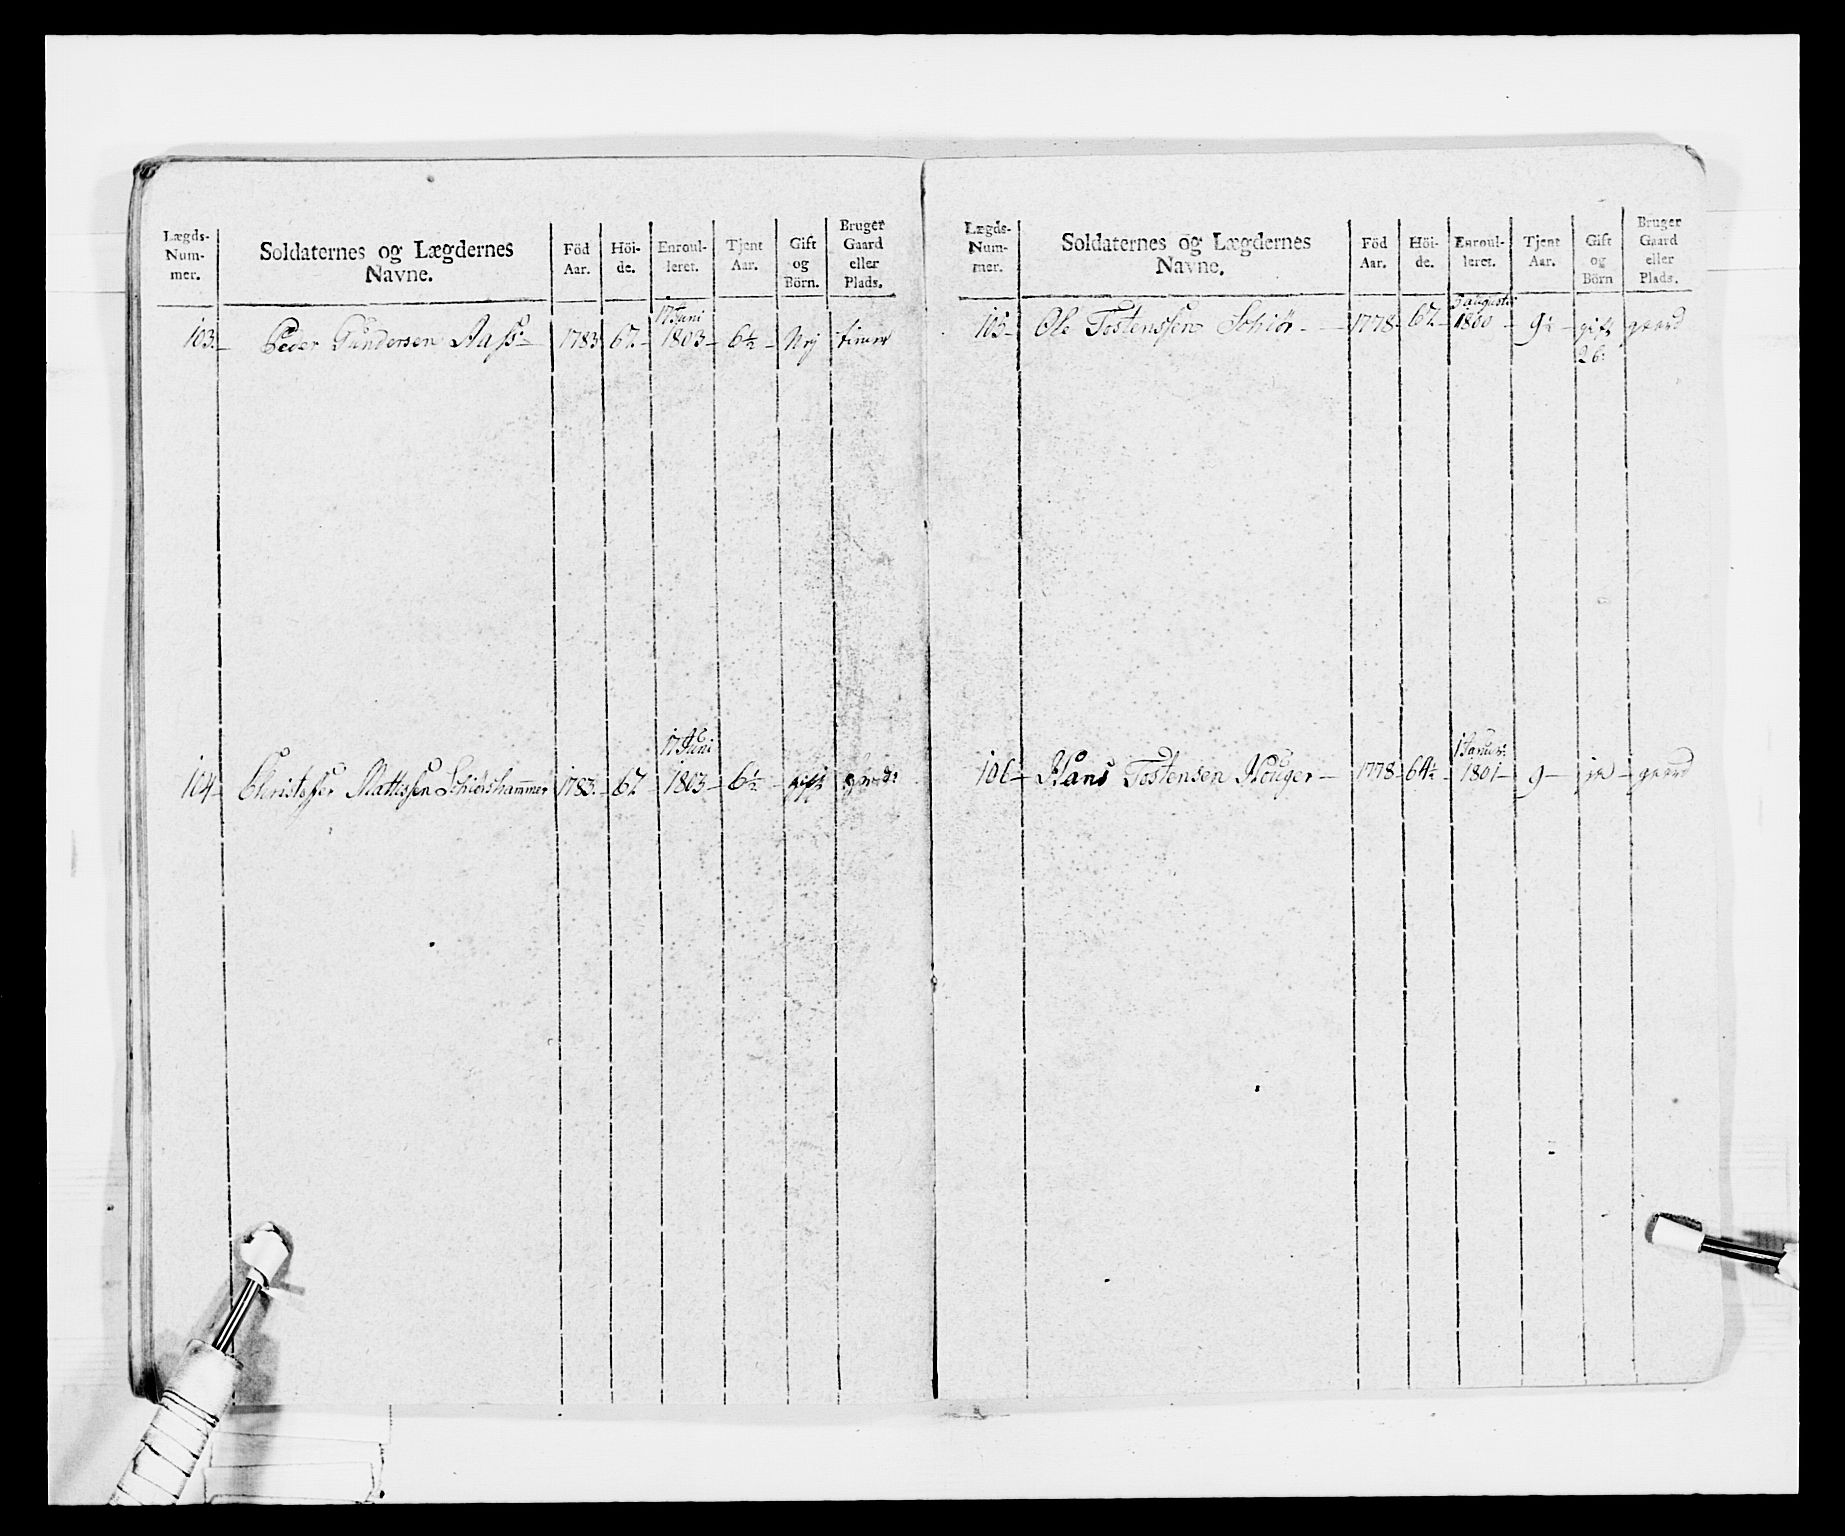 Lægds-
Num-
mer.
Soldaternes og Lægdernes
Navne.
Föd
Aar.
Höi-
de.
Enroul-
leret.
Tjent
Aar.
Gift
og
Börn.
Bruger
Gaard
eller
Plads.
17 Juni
103. Peder Gundersen Aass 1783 67. 1803 6½ Nej tiener
17 Juni
104 Christoffer Mattissen Schiørshammer 1783. 67. 1803 6½ gift gaard:
Lægds-
Num-
mer.
Soldaternes og Lægdernes
Navne.
Föd
Aar.
Höi-
de.
Enroul-
leret.
Tjent
Aar.
Gift
og
Börn
Bruger
Gaard
eller
Plads.
105 Ole Tostenssen Schiør 1778 67. 1800 9½ gift gaard
2 b:
106 Hans Tostensen Houger 1778 64½ 1801 9 ja gaard